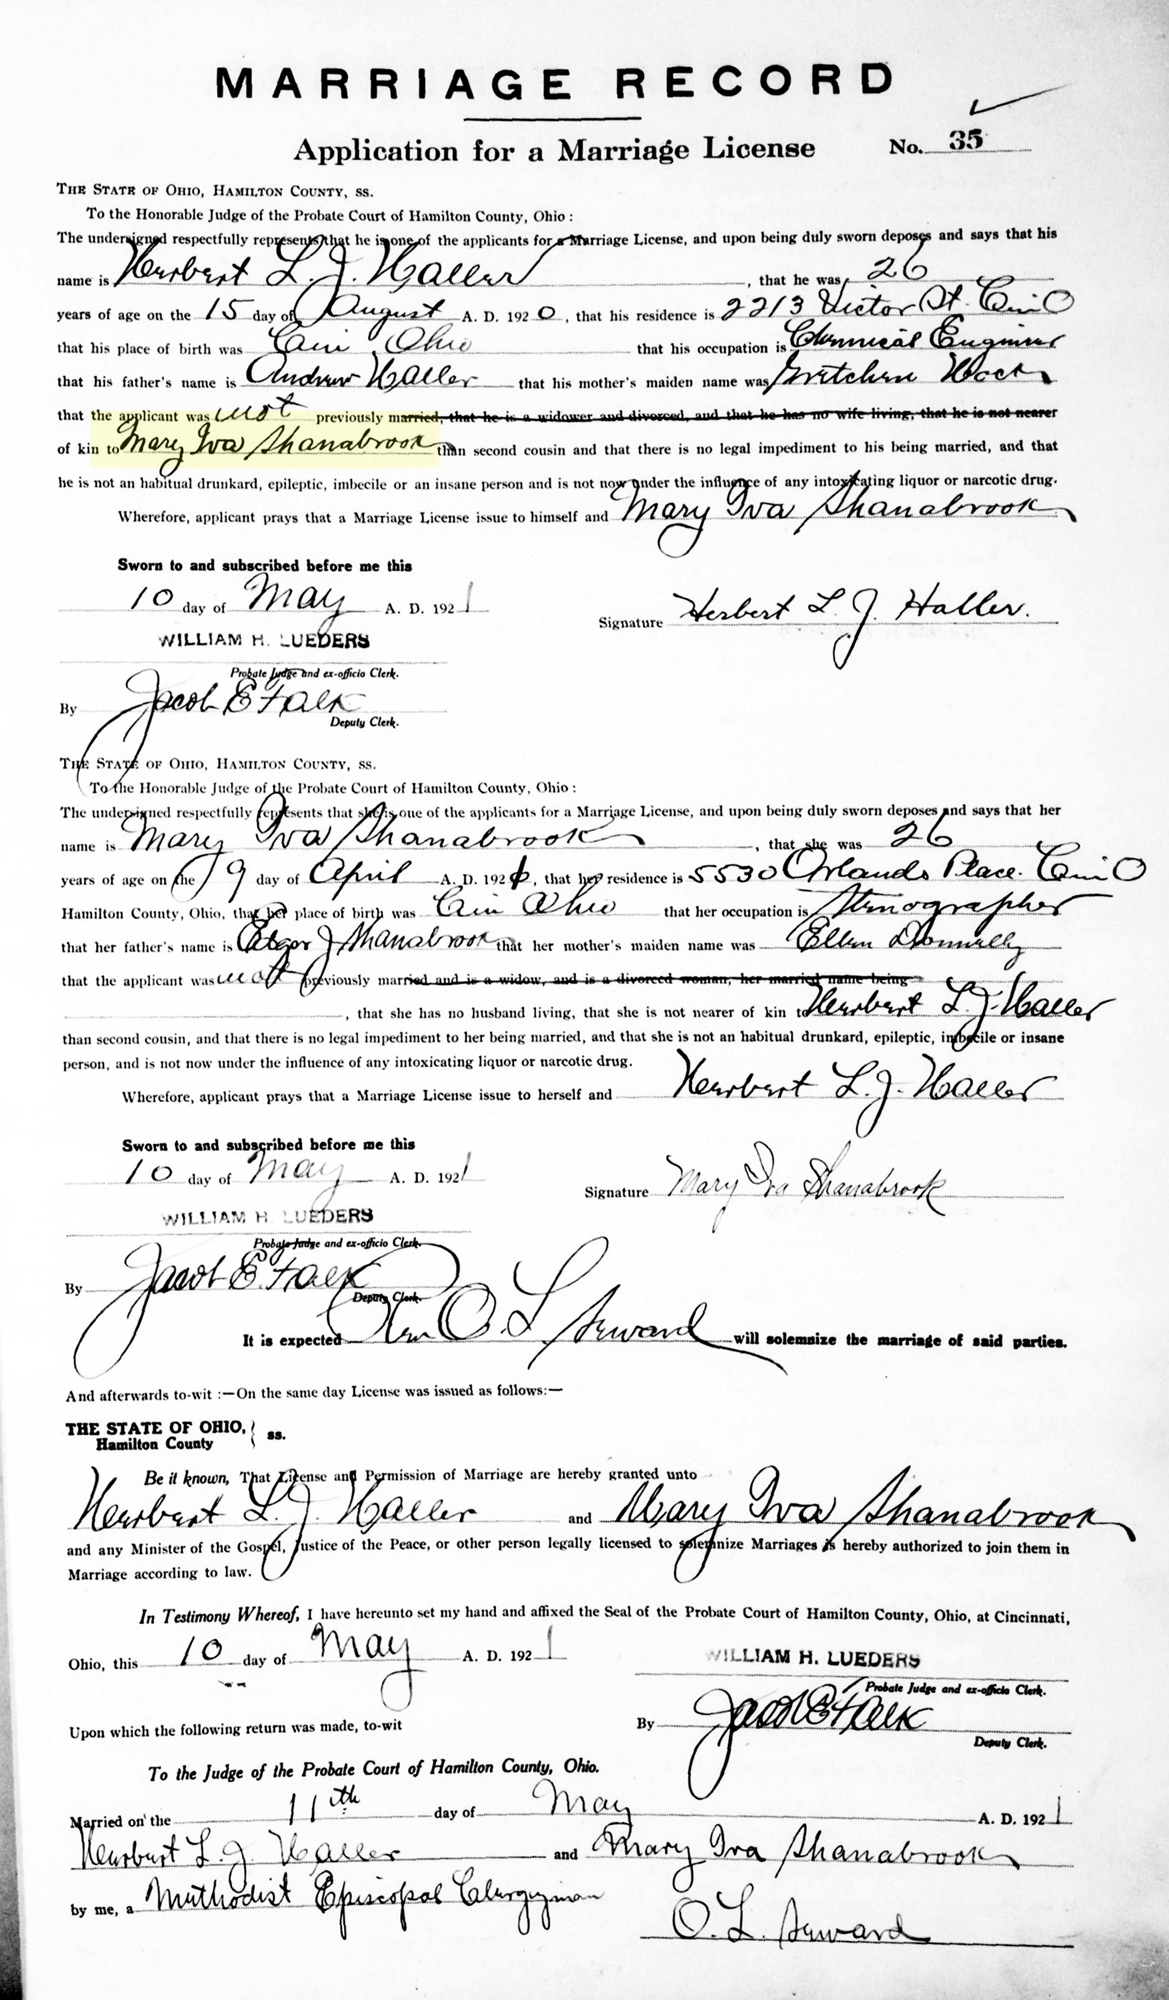 MARRIAGE RECORD
Application for a Marriage License No. 35
THE STATE OF OHIO, HAMILTON COUNTY, SS.
To the Honorable Judge of the Probate Court of Hamilton County, Ohio:
The undersigned respectfully represents that he is one of the applicants for a Marriage License, and upon being duly sworn deposes and says that his
name is Herbert L. J. Haller, that he was 26
years of age on the 15 day of August A. D. 1920, that his residence is 2213 Victor St. Cin O
that his place of birth was Cin Ohio that his occupation is Chemical Engineer
that his father's name is Andrew Haller that his mother's maiden name was Gretchen
that the applicant was not previously married, that he is a widower and divorced, and that he has no wife living, that he is not nearer
of kin to Mary Iva Shanabrook than second cousin and that there is no legal impediment to his being married, and that
he is not an habitual drunkard, epileptic, imbecile or an insane person and is not now under the influence of any intoxicating liquor or narcotic drug.
Wherefore, applicant prays that a Marriage License issue to himself and Mary Iva Shanabrook
Sworn to and subscribed before me this
10 day of May A. D. 1921
Signature Herbert L. J. Haller.
WILLIAM H. LUEDERS
Probate Judge and ex-officio Clerk.
By Jacob E Falk
Deputy Clerk.
THE STATE OF OHIO, HAMILTON COUNTY, SS.
To the Honorable Judge of the Probate Court of Hamilton County, Ohio:
The undersigned respectfully represents that she is one of the applicants for a Marriage License, and upon being duly sworn deposes and says that her
name is Mary Iva Shanabrook, that she was 26
years of age on the 9 day of April A. D. 192, that her residence is 5530 Orlando Place. Cin O
Hamilton County, Ohio, that her place of birth was Cin Ohio that her occupation is Stenographer
that her father's name is Edgar J Shanabrook that her mother's maiden name was Ellen Donnelly
that the applicant was not previously married and is a widow, and is a divorced woman, her married name being
, that she has no husband living, that she is not nearer of kin to Herbert L. J. Haller
than second cousin, and that there is no legal impediment to her being married, and that she is not an habitual drunkard, epileptic, imbecile or insane
person, and is not now under the influence of any intoxicating liquor or narcotic drug.
Wherefore, applicant prays that a Marriage License issue to herself and Herbert L. J. Haller
Sworn to and subscribed before me this
10 day of May A. D. 1921
Signature Mary Iva Shanabrook
WILLIAM H. LUEDERS
Probate Judge and ex-officio Clerk.
By Jacob E. Falk
Deputy Clerk.
It is expected Rev O. L. Seward will solemnize the marriage of said parties.
And afterwards to-wit :—On the same day License was issued as follows:—
THE STATE OF OHIO, ss.
Hamilton County
Be it known, That License and Permission of Marriage are hereby granted unto
Herbert L. J. Haller and Mary Iva Shanabrook
and any Minister of the Gospel, Justice of the Peace, or other person legally licensed to solemnize Marriages is hereby authorized to join them in
Marriage according to law.
In Testimony Whereof, I have hereunto set my hand and affixed the Seal of the Probate Court of Hamilton County, Ohio, at Cincinnati,
Ohio, this 10 day of May A. D. 1921
WILLIAM H. LUEDERS
Probate Judge and ex-officio Clerk.
Upon which the following return was made, to-wit
By Jacob E Falk
Deputy Clerk.
To the Judge of the Probate Court of Hamilton County, Ohio.
Married on the 11th day of May A. D. 1921
Herbert L. J. Haller and Mary Iva Shanabrook
by me, a Methodist Episcopal Clergyman
O. L. Seward